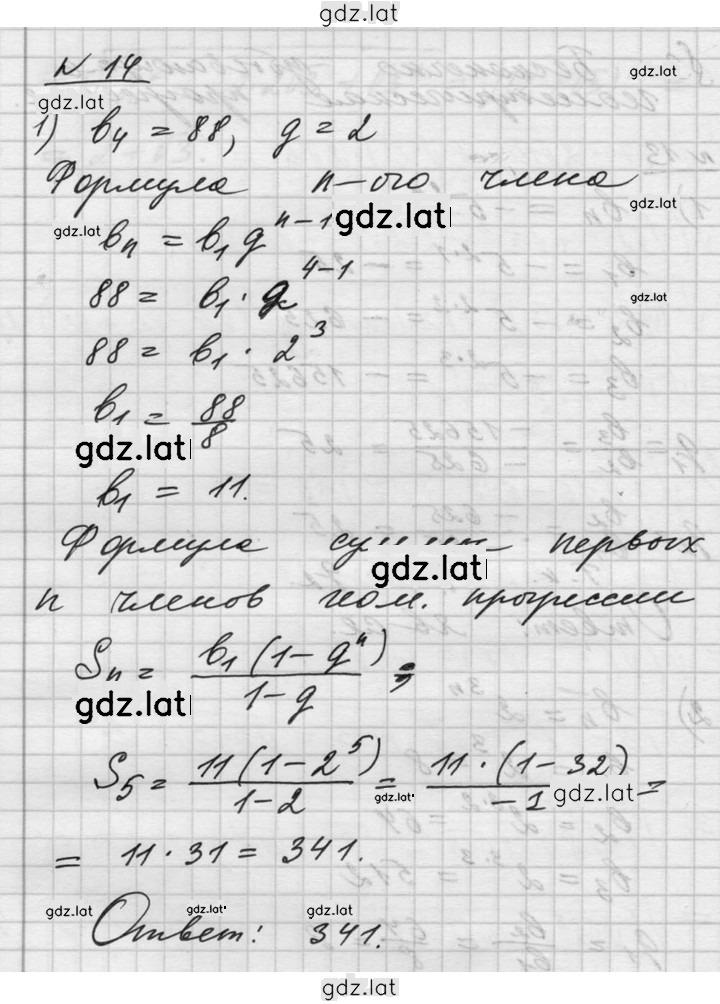 gdz.lat
N 14
gdz.lat
gdz.lat
1) b₄ = 88, q = 2
Формула n-ого члена
gdz.lat
gdz.lat
gdz.lat
bₙ = b₁ qⁿ⁻¹
88 = b₁ · q⁴⁻¹
gdz.lat
88 = b₁ · 2³
b₁ = 88/8
gdz.lat
b₁ = 11.
Формула первых
gdz.lat
n членов геом. прогрессии
Sₙ = b₁(1 - qⁿ)/(1 - q) ;
gdz.lat
S₅ = 11(1 - 2⁵)/(1 - 2) = 11 · (1 - 32)/(-1) =
gdz.lat
gdz.lat
= 11 · 31 = 341.
gdz.lat
gdz.lat
gdz.lat
Ответ: 341.
gdz.lat